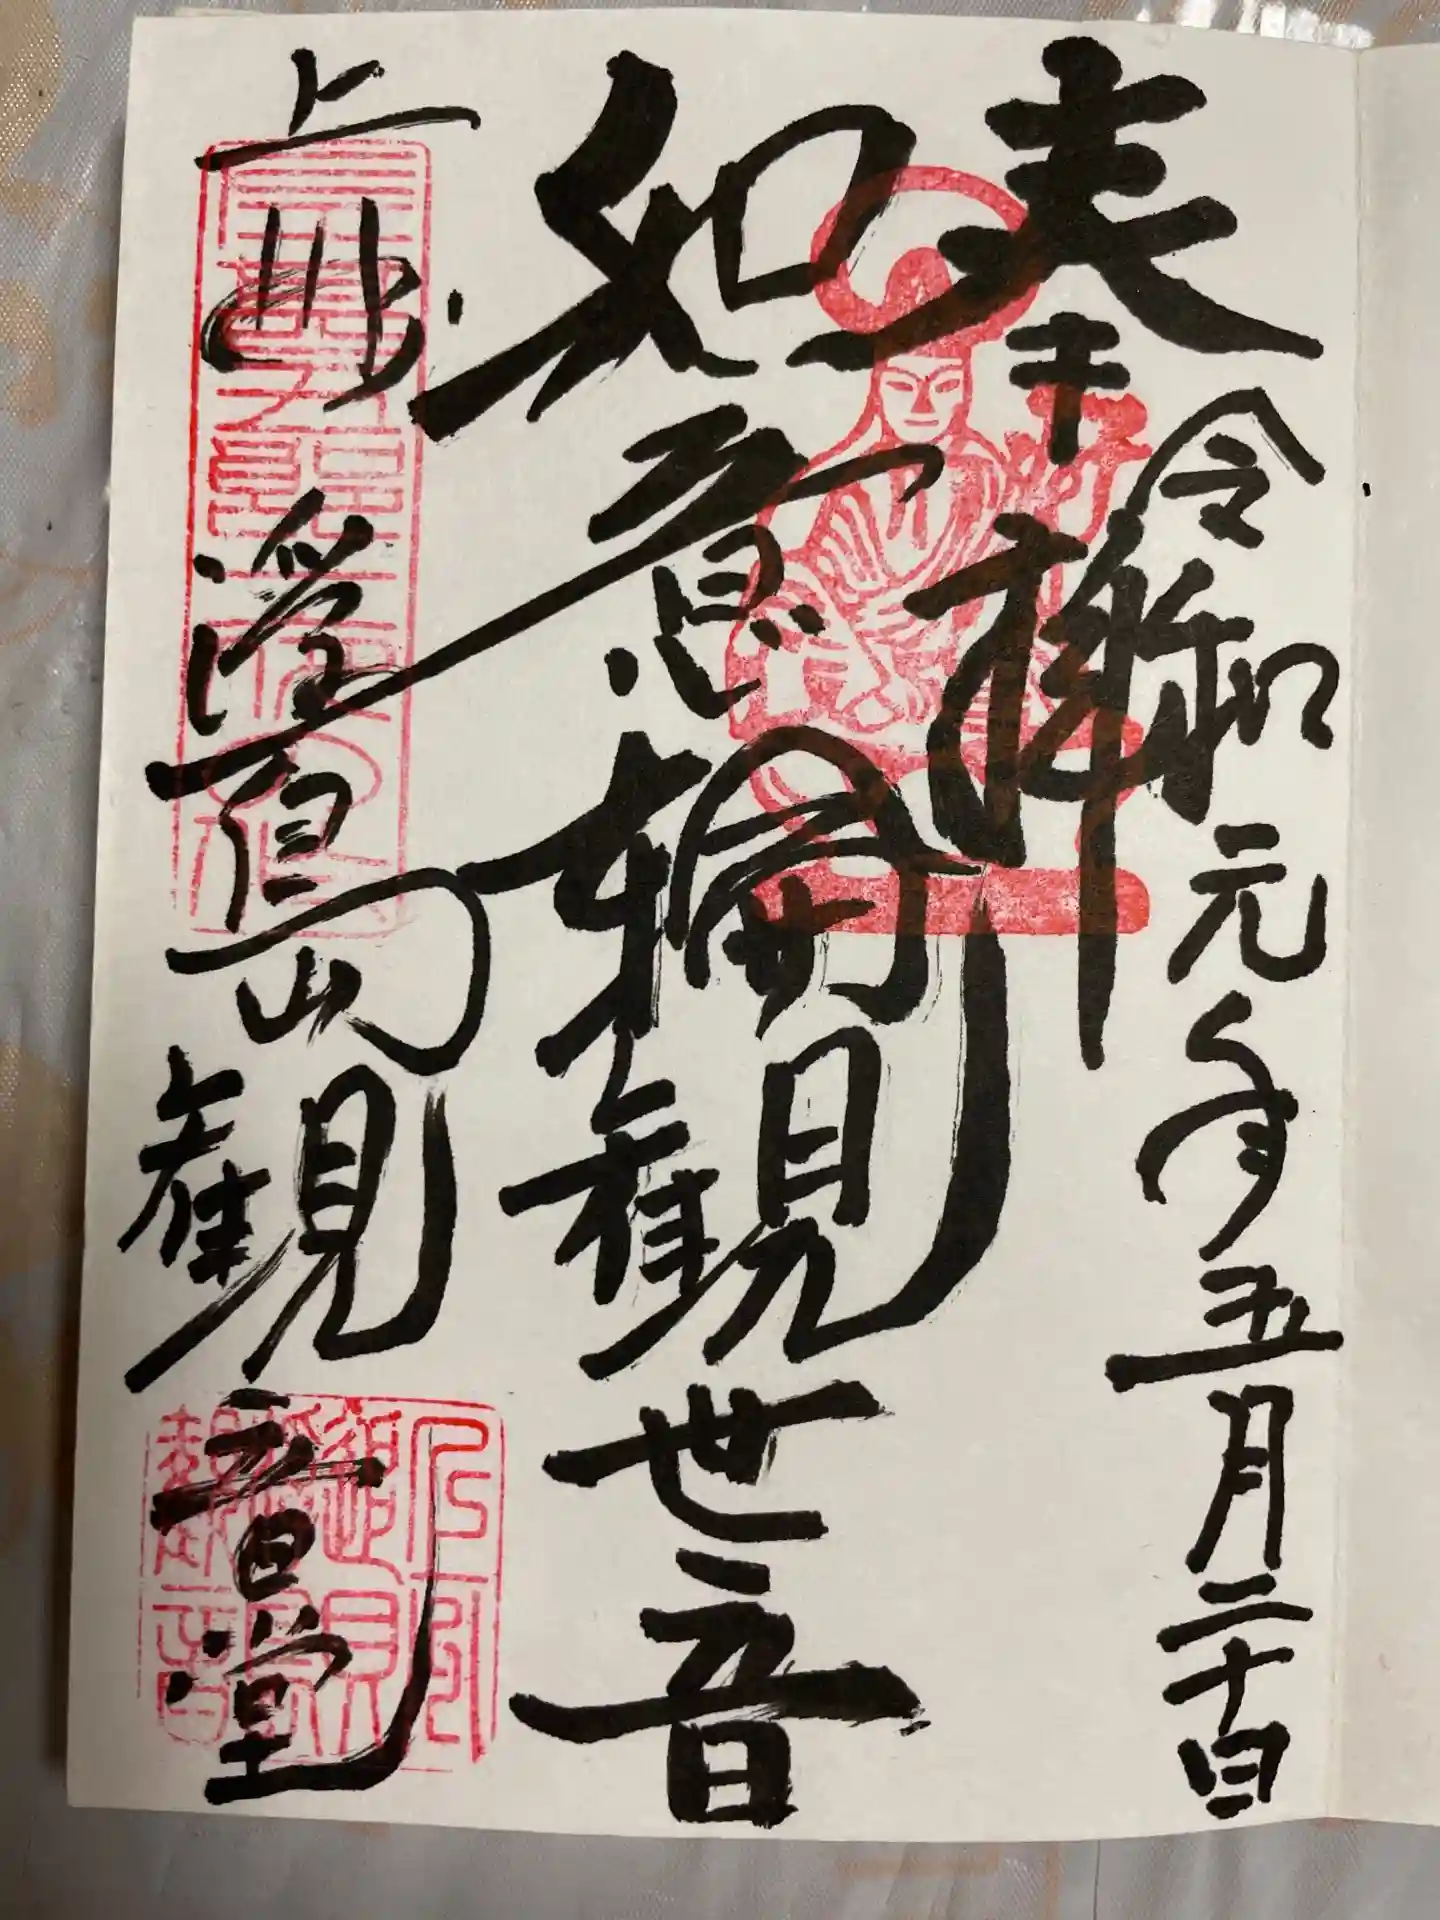 奉拝
令和元年五月二十日
如意輪観世音
上州
嶌観音堂